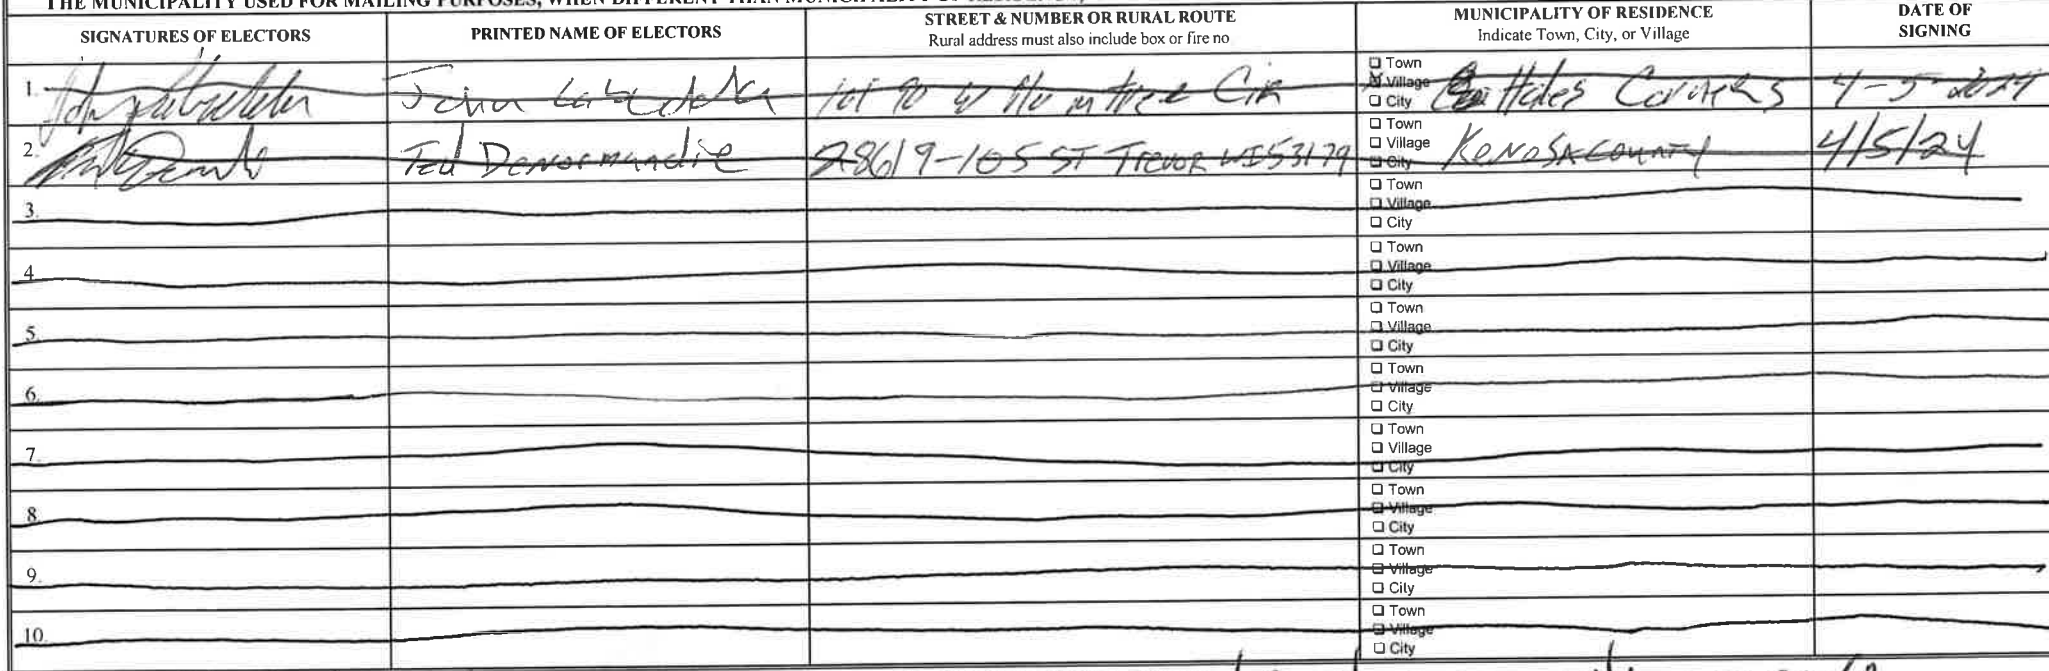 THE MUNICIPALITY USED FOR MAILING PURPOSES, WHEN DIFFERENT THAN MUNICIPALITY OF RESIDENCE,
SIGNATURES OF ELECTORS
PRINTED NAME OF ELECTORS
STREET & NUMBER OR RURAL ROUTE
Rural address must also include box or fire no
MUNICIPALITY OF RESIDENCE
Indicate Town, City, or Village
DATE OF
SIGNING
1.
John
Town
Village
City
Hales Corners
4-5-2024
2.
Ted Denormandie
28619-105 ST Trevor WI 53179
Town
Village
City
Kenosa County
4/5/24
3.
Town
Village
City
4.
Town
Village
City
5.
Town
Village
City
6.
Town
Village
City
7.
Town
Village
City
8.
Town
Village
City
9.
Town
Village
City
10.
Town
Village
City